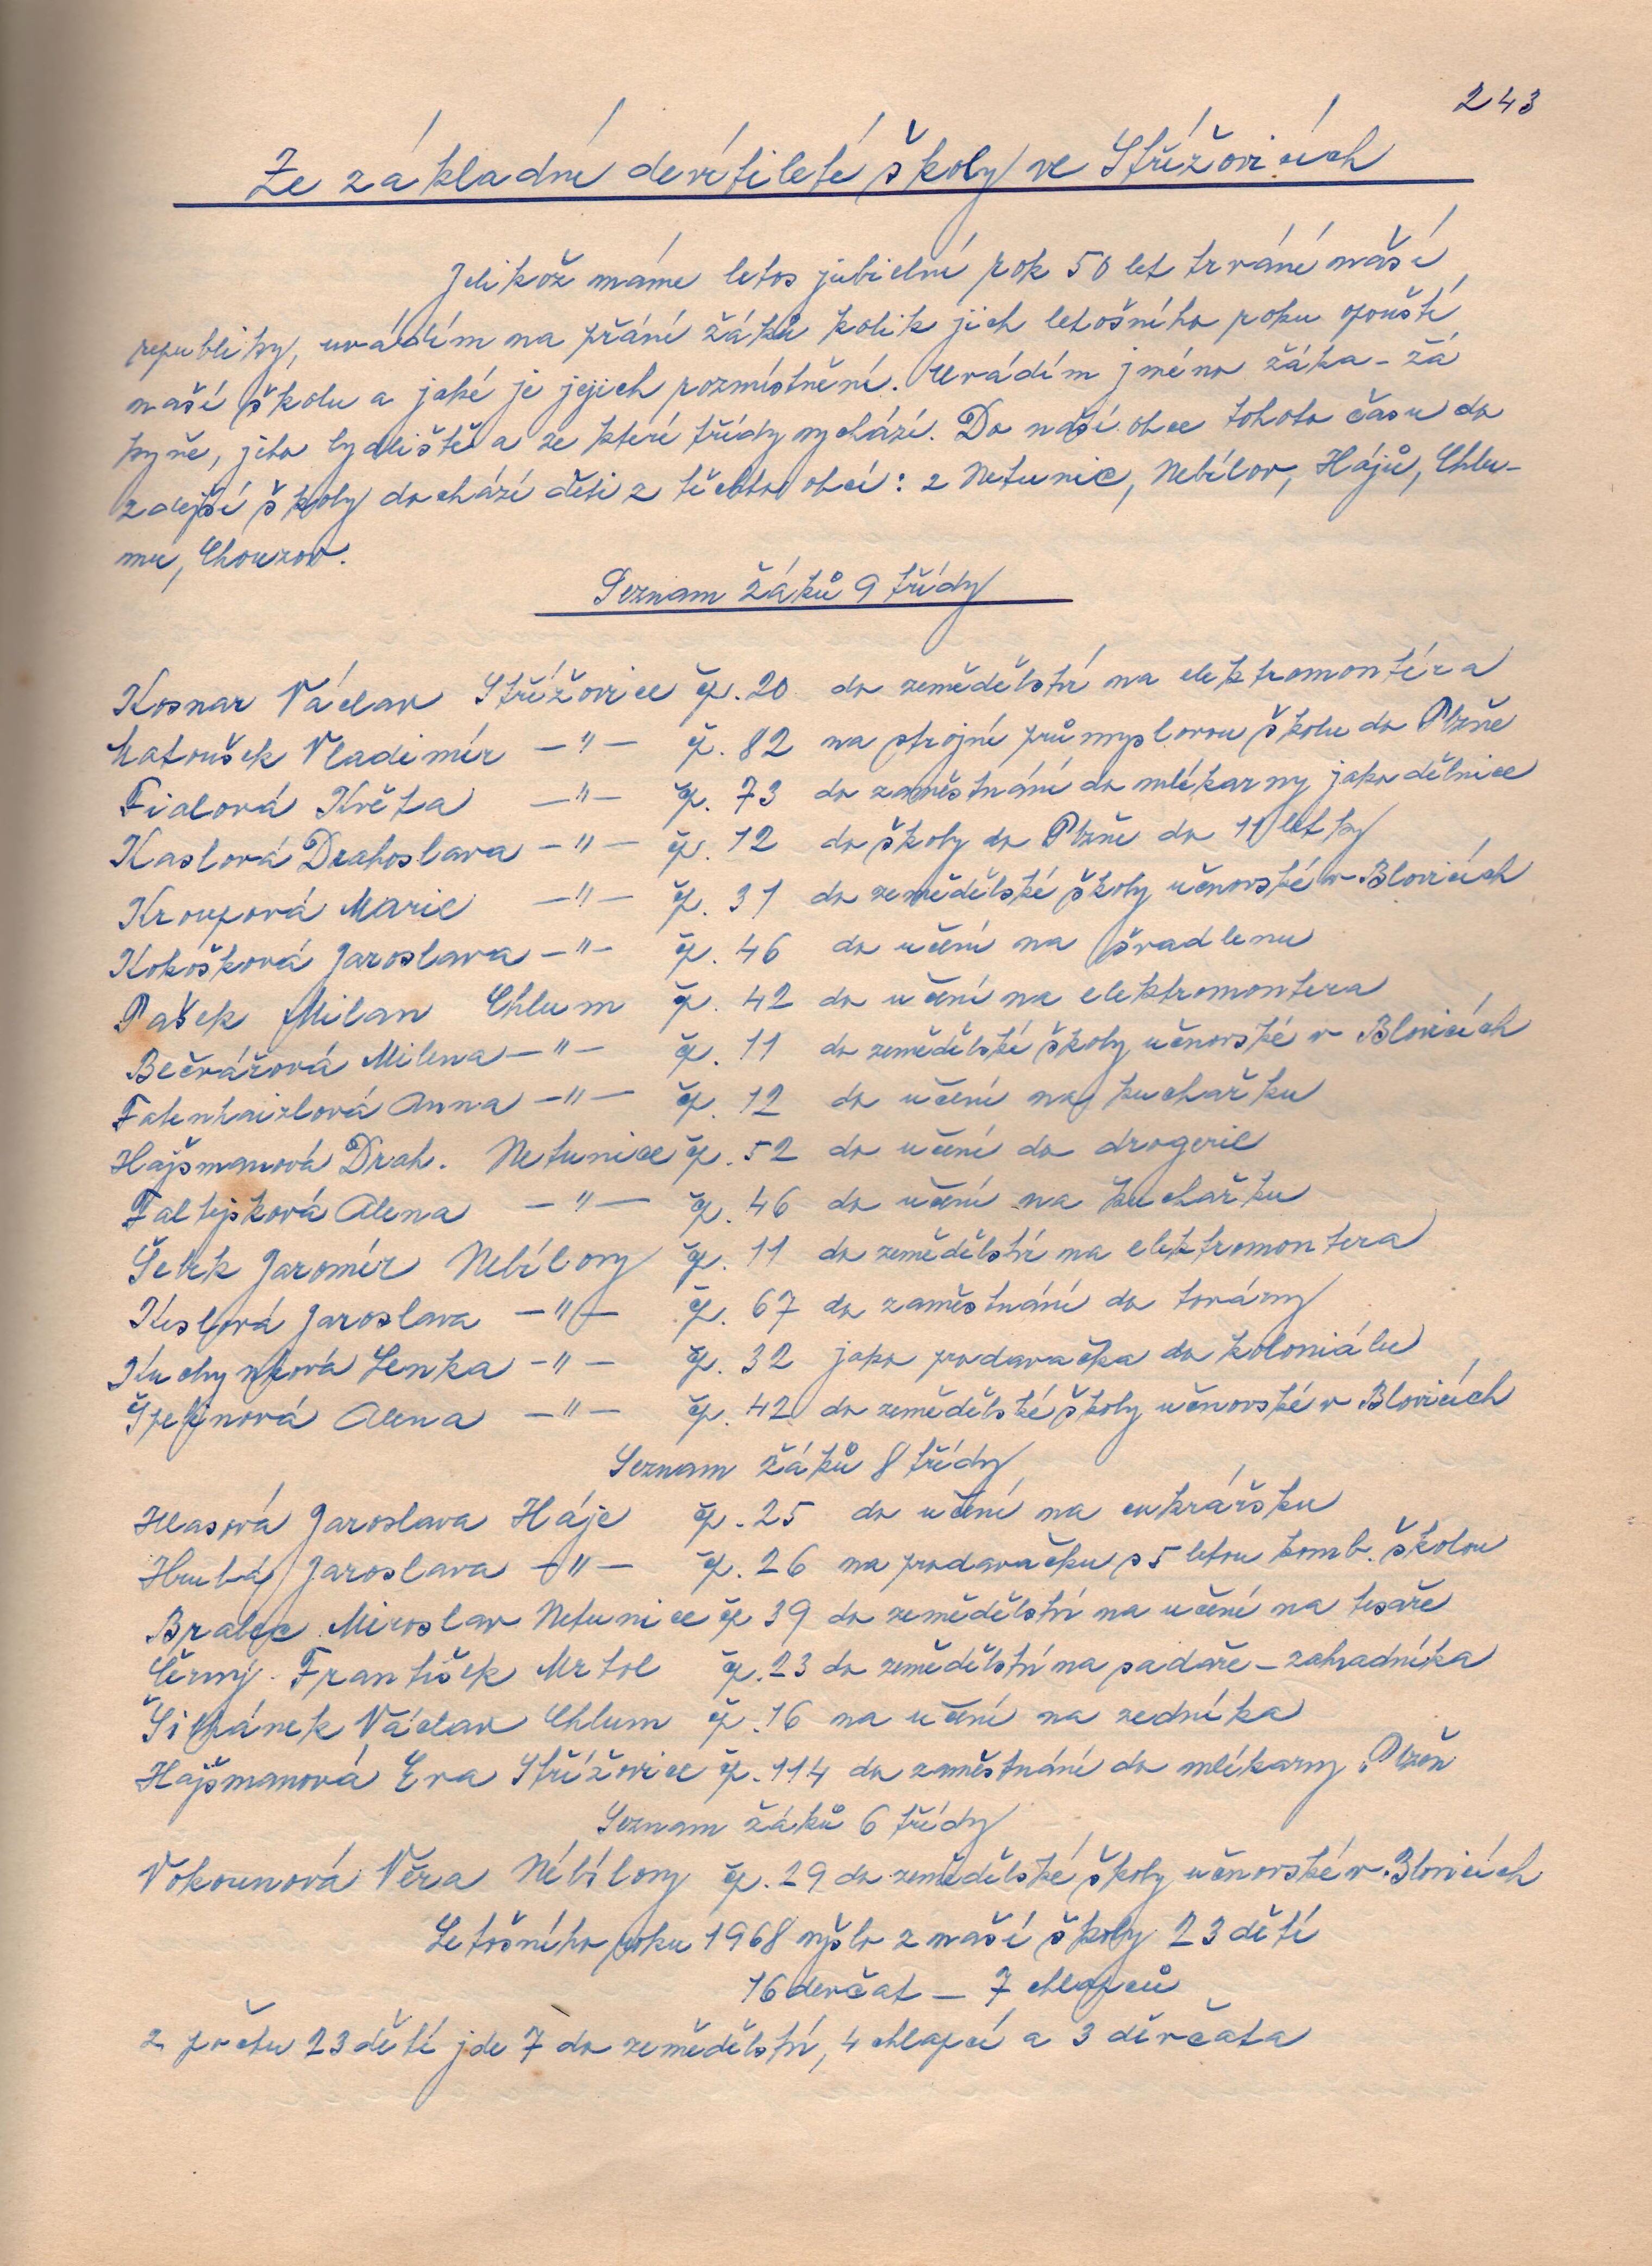 243
Ze základní devítileté školy ve Střížovicích
Jelikož máme letos jubielní rok 50 let trvání naší
republiky, uvádím na přání žáků kolik jich letošního roku opouští
naší školu a jaké je jejich rozmístnění. Uvádím jméno žáka - žá
kyně, jeho bydliště a ze které třídy vychází. Do naší obce tohoto času do
zdejší školy dochází děti z těchto obcí: z Netunic, Nebílov, Hájů, Chlu-
mu, Chouzov.
Seznam žáků 9 třídy
Kosnar Václav Střížovice čp. 20 do zemědělství na elektromontéra
Matoušek Vladimír —"— č. 82 na strojní průmyslovou školu do Plzně
Fialová Květa —"— čp. 73 do zaměstnání do mlékarny jako dělnice
Kaslová Drahoslava —"— čp. 12 do školy do Plzně do 11 letky
Kroupová Marie —"— čp. 31 do zemědělské školy učnovské v Blovicích
Kokošková Jaroslava —"— čp. 46 do učení na švadlenu
Pašek Milan Chlum čp. 42 do učení na elektromontera
Bečvářová Milena —"— čp. 11 do zemědělské školy učnovské v Blovicích
Anna —"— čp. 12 do učení na kuchařku
Hajšmanová Drah. Netunice čp. 52 do učení do drogerie
Faltejsková Alena —"— čp. 46 do učení na kuchařku
Jaromír Nebílovy čp. 11 do zemědělství na elektromontera
Keslová Jaroslava —"— čp. 67 do zaměstnání do továrny
Kuchynková Lenka —"— čp. 32 jako prodavačka do koloniálu
Alena —"— čp. 42 do zemědělské školy učnovské v Blovicích
Seznam žáků 8 třídy
Hlasová Jaroslava Háje čp. 25 do učení na cukrářsku
Hrubá Jaroslava —"— čp. 26 na prodavačku s 5 letou komb. školou
Bralec Miroslav Netunice čp 39 do zemědělství na učení na tesaře
Černý František Mrtol čp. 23 do zemědělství na sadaře - zahradníka
Václav Chlum čp. 16 na učení na zedníka
Hajšmanová Eva Střížovice čp. 114 do zaměstnání do mlékarny Plzeň
Seznam žáků 6 třídy
Vokounová Věra Nébílovy čp. 29 do zemědělské školy učnovské v Blovicích
Letošního roku 1968 vyšlo z naší školy 23 dětí
16 děvčat — 7 chlapců
z počtu 23 dětí jde 7 do zemědělství, 4 chlapci a 3 děvčata